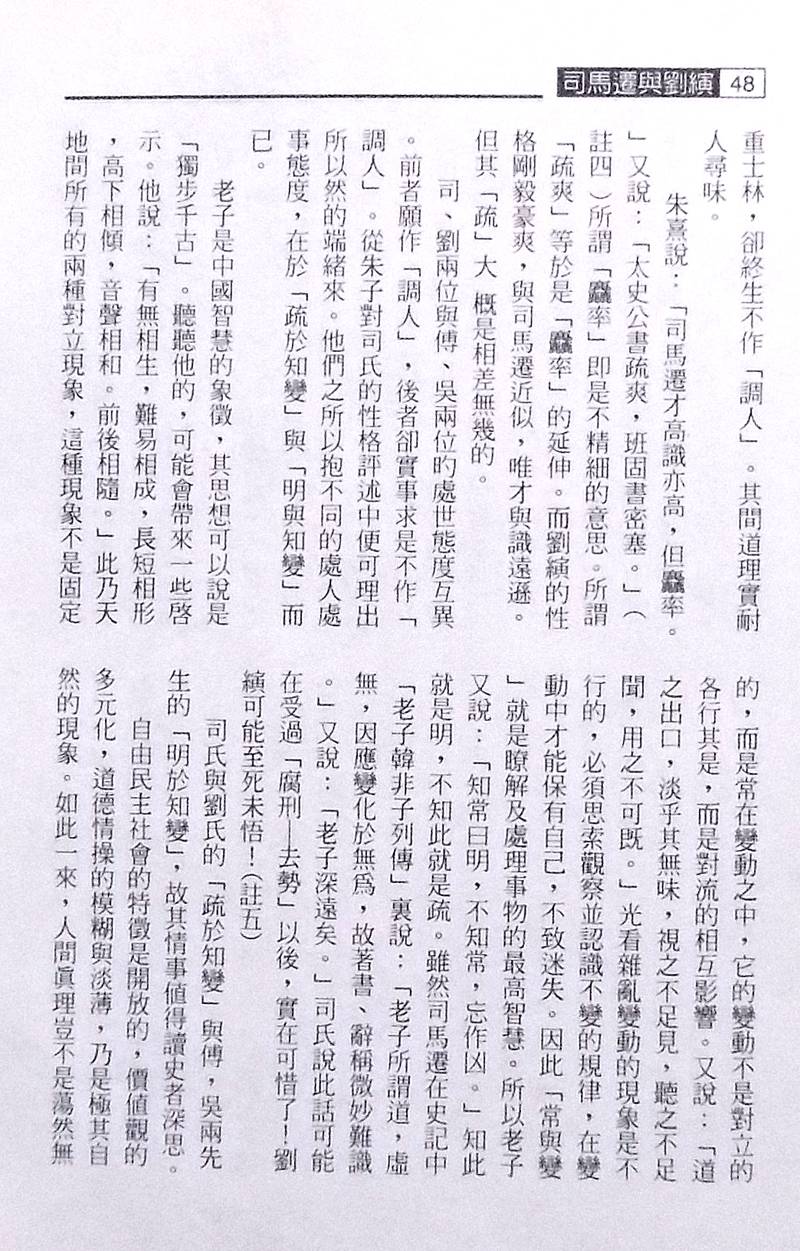 司馬遷與劉縯 48
重士林，卻終生不作「調人」。其間道理實耐
人尋味。
朱熹說：「司馬遷才高識亦高，但麤率。
」又說：「太史公書疏爽，班固書密塞。」（
註四）所謂「麤率」即是不精細的意思。所謂
「疏爽」等於是「麤率」的延伸。而劉縯的性
格剛毅豪爽，與司馬遷近似，唯才與識遠遜。
但其「疏」大 概是相差無幾的。
司、劉兩位與傅、吳兩位旳處世態度互異
。前者願作「調人」，後者卻實事求是不作「
調人」。從朱子對司氏的性格評述中便可理出
所以然的端緒來。他們之所以抱不同的處人處
事態度，在於「疏於知變」與「明與知變」而
已。
老子是中國智慧的象徵，其思想可以說是
「獨步千古」。聽聽他的，可能會帶來一些啓
示。他說：「有無相生，難易相成，長短相形
，高下相傾，音聲相和。前後相隨。」此乃天
地間所有的兩種對立現象，這種現象不是固定
的，而是常在變動之中，它的變動不是對立的
各行其是，而是對流的相互影響。又說：「道
之出口，淡乎其無味，視之不足見，聽之不足
聞，用之不可既。」光看雜亂變動的現象是不
行的，必須思索觀察並認識不變的規律，在變
動中才能保有自己，不致迷失。因此「常與變
」就是瞭解及處理事物的最高智慧。所以老子
又說：「知常曰明，不知常，忘作凶。」知此
就是明，不知此就是疏。雖然司馬遷在史記中
「老子韓非子列傳」裏說：「老子所謂道，虛
無，因應變化於無爲，故著書、辭稱微妙難識
。」又說：「老子深遠矣。」司氏說此話可能
在受過「腐刑—去勢」以後，實在可惜了！劉
縯可能至死未悟！（註五）
司氏與劉氏的「疏於知變」與傅，吳兩先
生的「明於知變」，故其情事值得讀史者深思。
自由民主社會的特徵是開放的，價值觀的
多元化，道德情操的模糊與淡薄，乃是極其自
然的現象。如此一來，人間眞理豈不是蕩然無